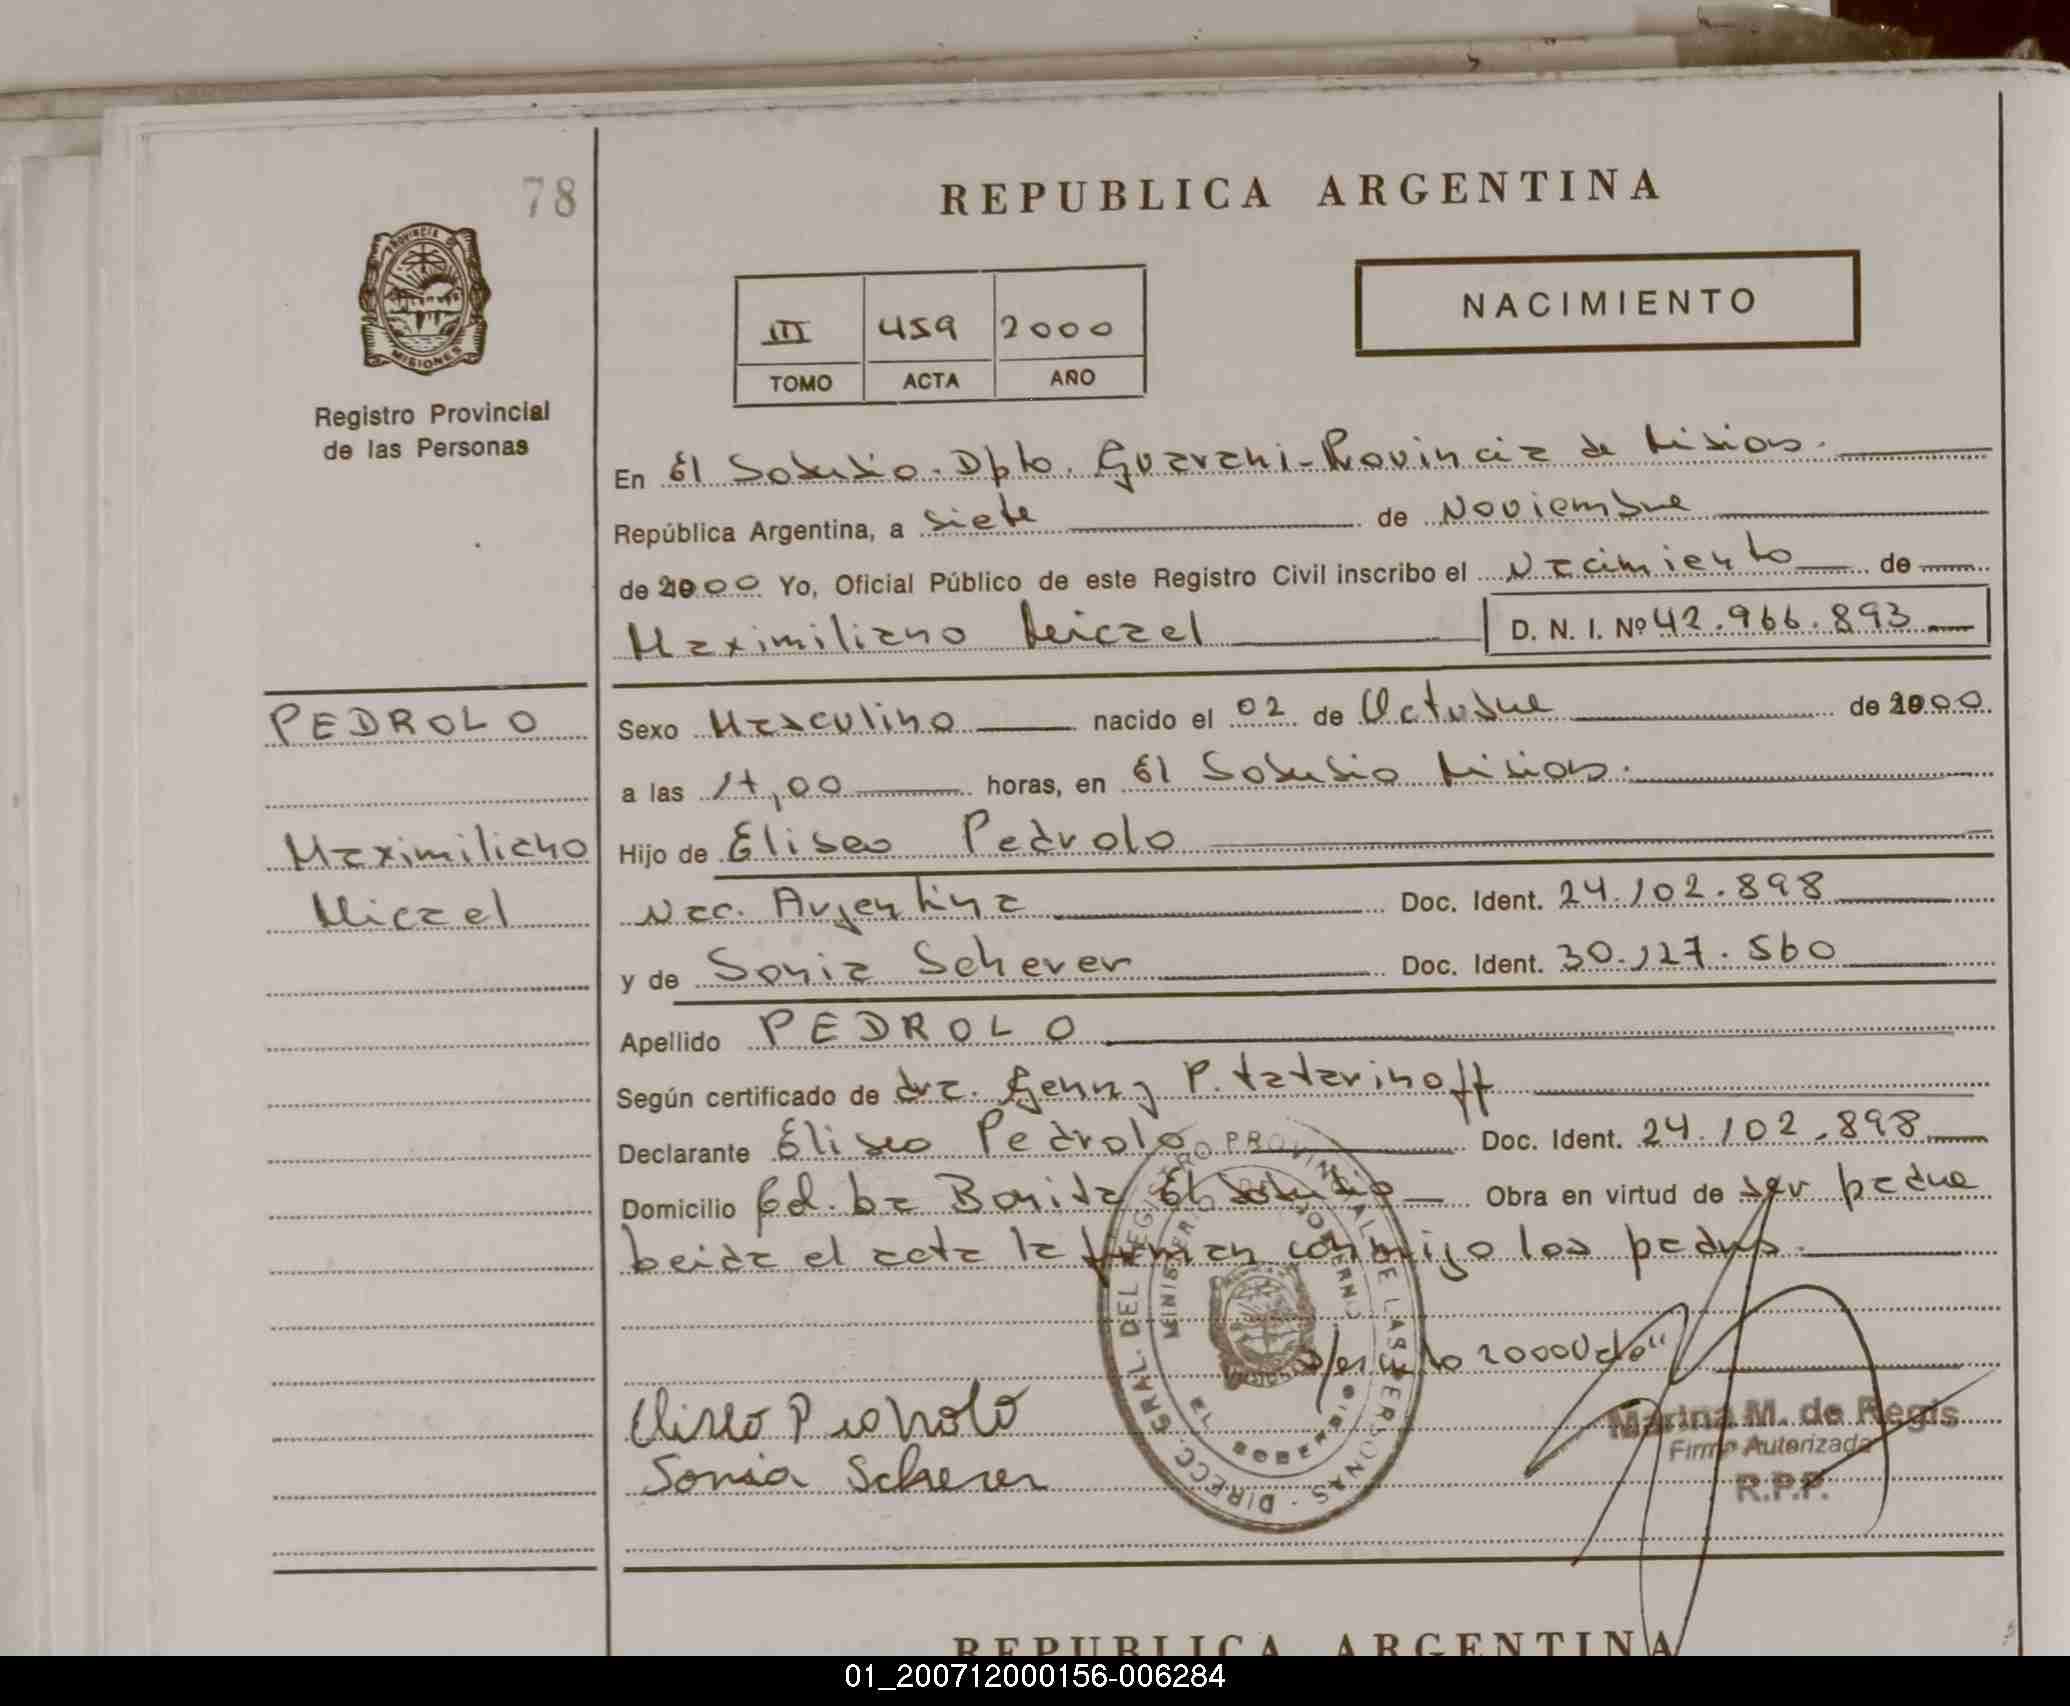 78
PROVINCIA DE
MISIONES
Registro Provincial
de las Personas
REPUBLICA ARGENTINA
NACIMIENTO
III 459 2000
TOMO ACTA AÑO
En El Soberbio. Dpto. Guarani-Provincia de Misiones.
República Argentina, a siete de Noviembre
de 2000 Yo, Oficial Público de este Registro Civil inscribo el Nacimiento de
Maximiliano Micael D. N. I. Nº 42.966.893
PEDROLO
Maximiliano
Micael
Sexo Masculino nacido el 02 de Octubre de 2000
a las 17,00 horas, en El Soberbio Misiones.
Hijo de Eliseo Pedrolo
Nac. Argentina Doc. Ident. 24.102.898
y de Sonia Scherer Doc. Ident. 30.127.560
Apellido PEDROLO
Según certificado de dra. Genny P. tatarinoff
Declarante Eliseo Pedrolo Doc. Ident. 24.102.898
Domicilio Col. La Bonita El Soberbio Obra en virtud de ser padre
Leida el acta la firman conmigo los padres.
2000
Eliseo Pedrolo
Sonia Scherer
DIRECC. GRAL. DEL REGISTRO PROVINCIAL DE LAS PERSONAS
MINISTERIO GOBIERNO
EL SOBERBIO
Marina M. de Regis
Firma Autorizada
R.P.P.
REPUBLICA ARGENTINA
01_200712000156-006284